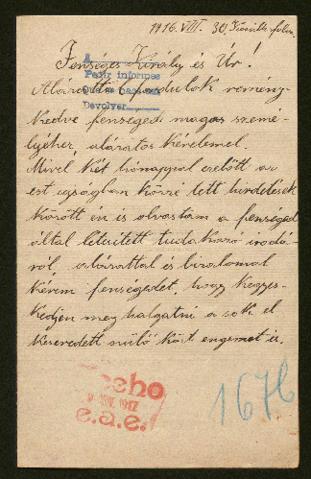 1916. VIII. 30.
Fenséges Király és Úr!
A
Para informes
Devolver
Alázattal fordulok remény-
kedve fenséged magas szemé-
lyéhez, alázatos kérelemel.
Mivel két hónappal ezelőtt az
est ujságban közzé tett hirdetések
között én is olvastam a fenséged
által létesített tudakozó irodá-
ról, alázattal és bizalomal
kérem fenségedet, hogy kegyes-
kedjen meghalgatni a sok el
keseredett szülő közt engemet is.
echo
1917
e.a.e.
1676